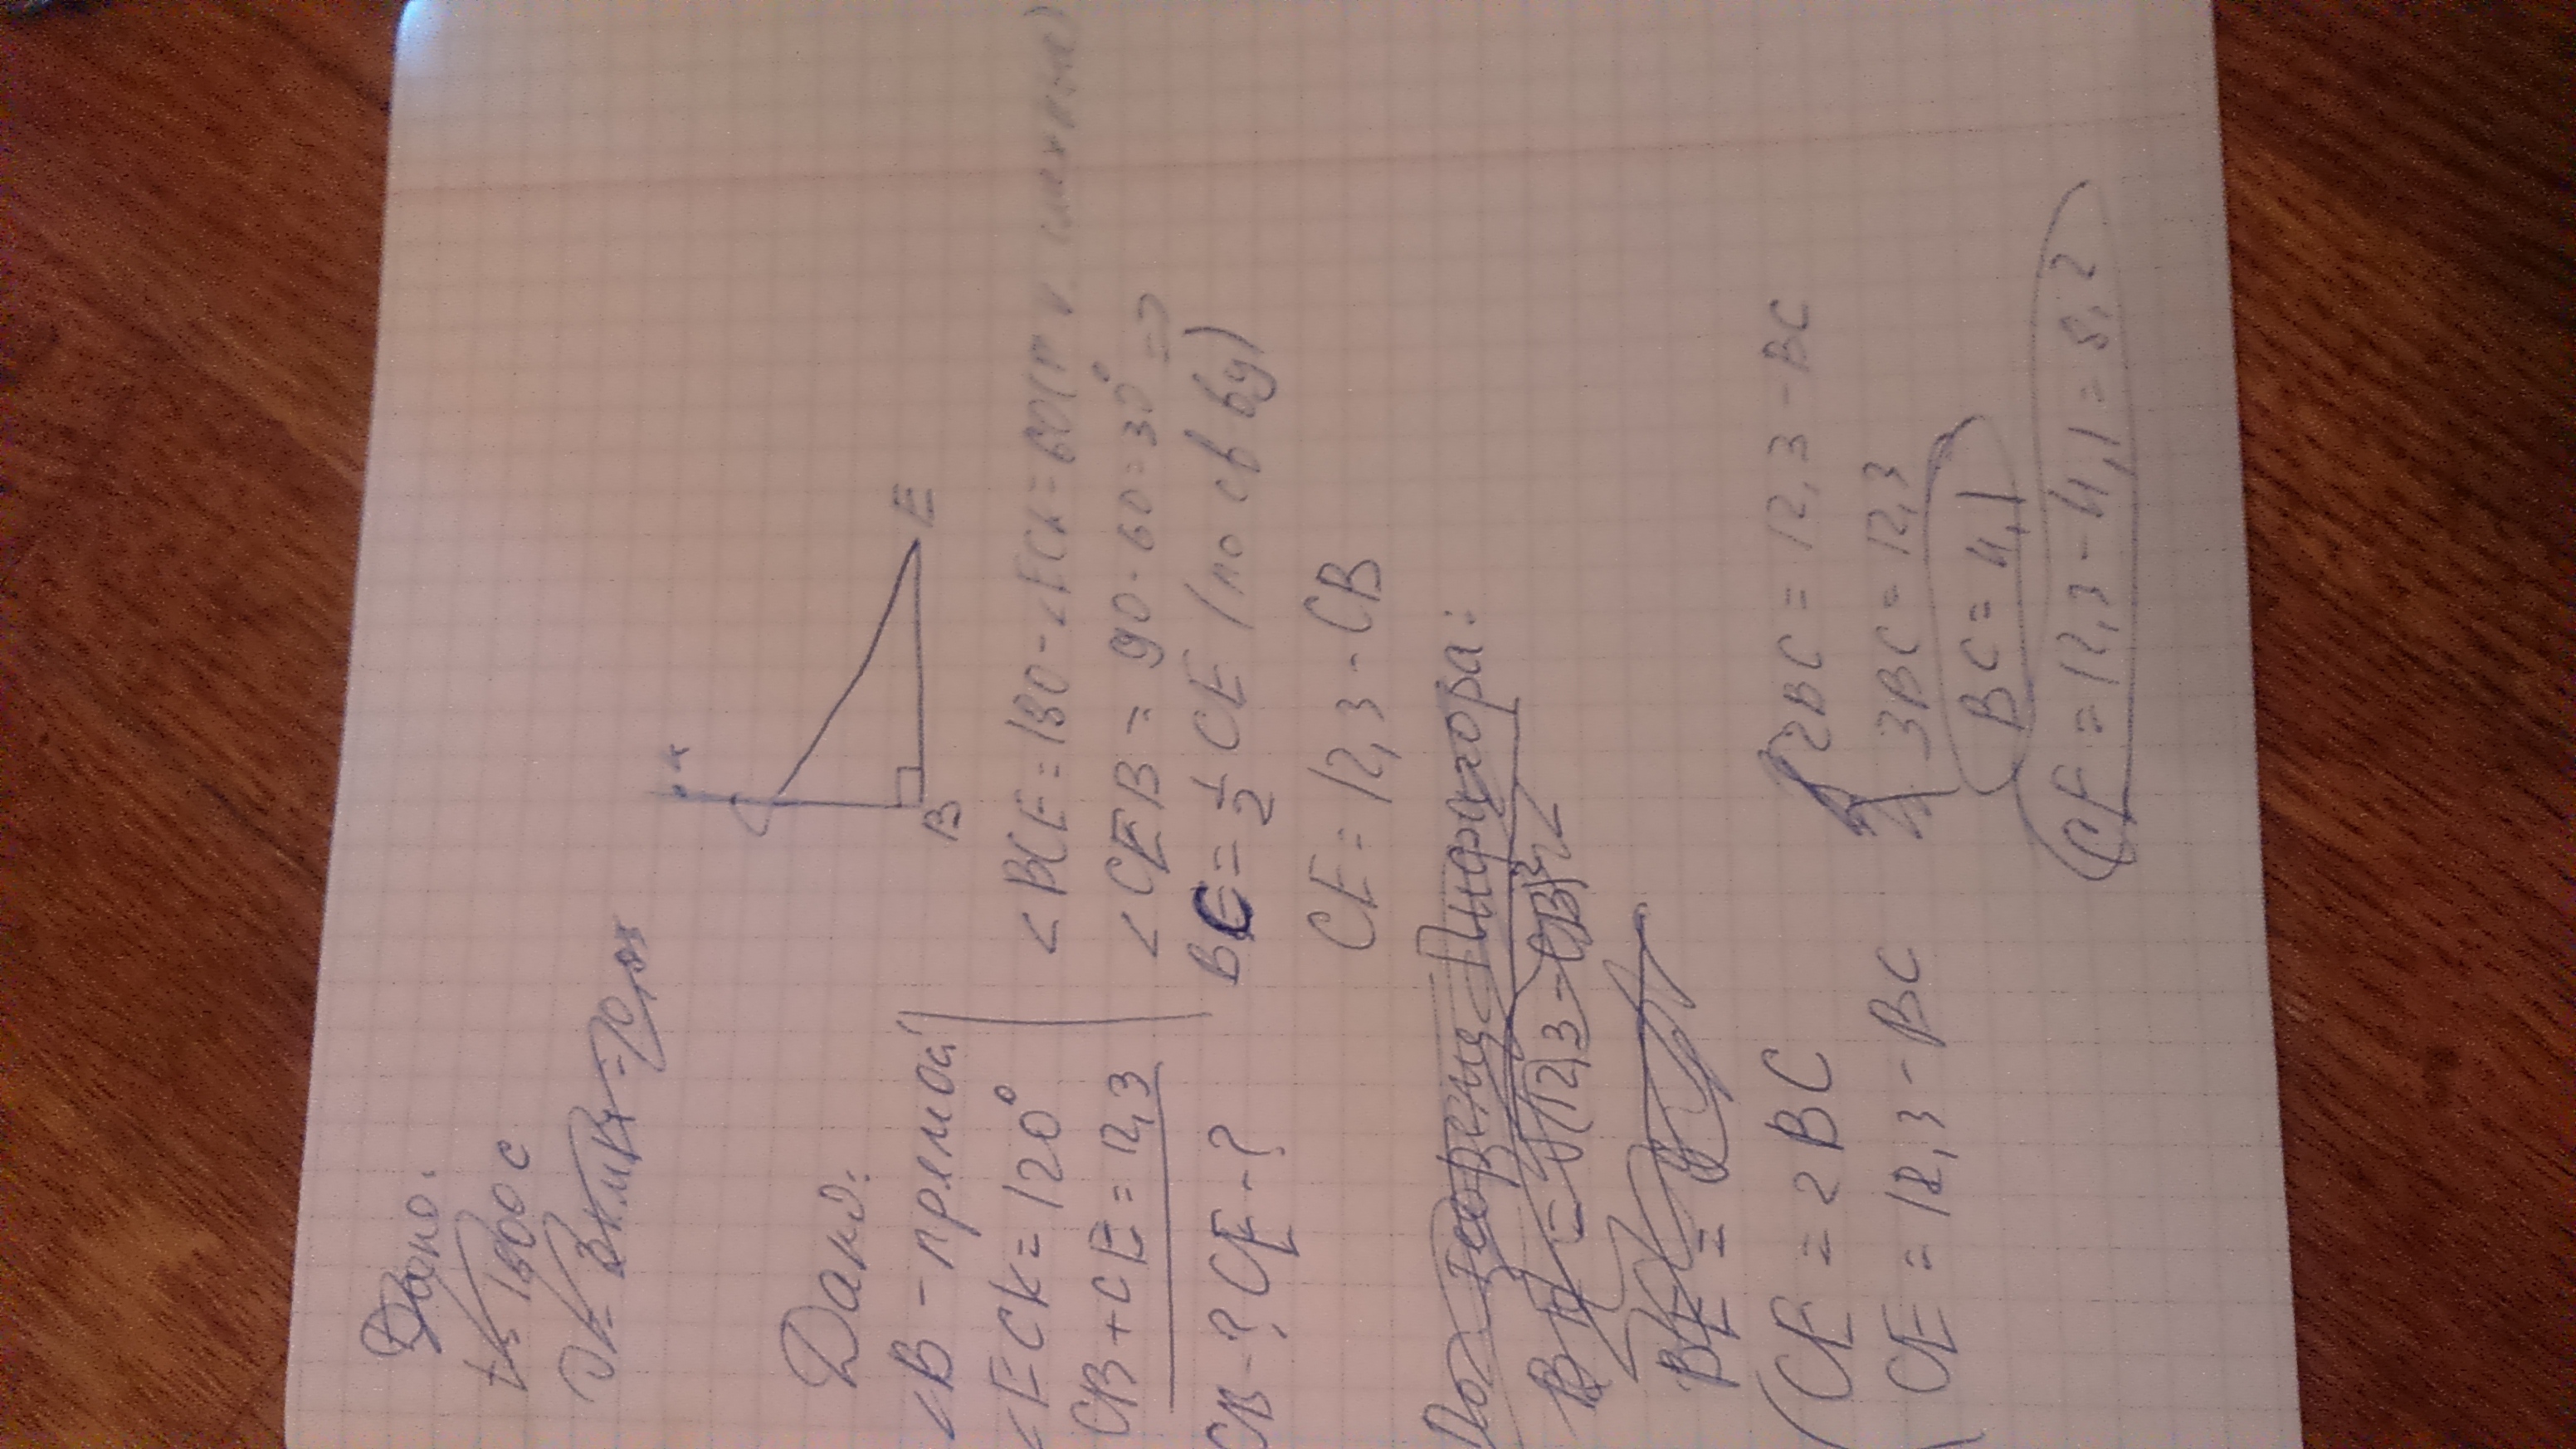 Дано:
t = 1800 с
Дано:
<B - прямой
<ECK = 120°
CB + CE = 12,3
CB - ? CE - ?
K
C
B
E
<BCE = 180 - <ECK = 60 (т. к. смежные)
<CEB = 90 - 60 = 30° =>
BC = 1/2 CE (по св ву)
CE = 12,3 - CB
По теореме Пифагора:
BE =
CE = 2BC
CE = 12,3 - BC
2BC = 12,3 - BC
3BC = 12,3
BC = 4,1
CE = 12,3 - 4,1 = 8,2